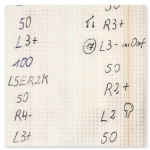 50
L3+
100
L5ER2K
50
R4-
L3+
R3+
17 L3-
50
R2+
L2
50